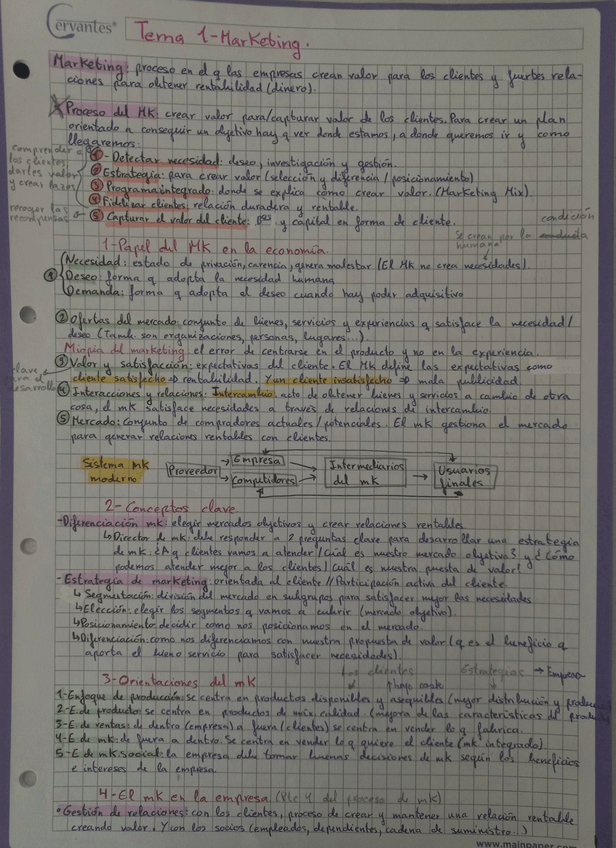 Cervantes®
Tema 1-Marketing.
Marketing: proceso en el q las empresas crean valor para los clientes y fuertes rela-
ciones para obtener rentabilidad (dinero).
Proceso del MK: crear valor para/capturar valor de los clientes. Para crear un plan
orientado a conseguir un objetivo hay q ver donde estamos, a donde queremos ir y como
llegaremos:
comprender a los clientes, darles valor y crear lazos
1 - Detectar necesidad: deseo, investigación y gestión.
2 Estrategia: para crear valor (selección y diferencia / posicionamiento)
3 Programa integrado: donde se explica cómo crear valor. (Marketing Mix)
4 Fidelizar clientes: relación duradera y rentable.
recoger las recompensas
5 Capturar el valor del cliente: y capital en forma de cliente.
Se crean por la condición humana
1-Papel del MK en la economía.
1 Necesidad: estado de privación, carencia, genera malestar (El MK no crea necesidades).
Deseo: forma q adopta la necesidad humana
Demanda: forma q adopta el deseo cuando hay poder adquisitivo
2 Ofertas del mercado: conjunto de bienes, servicios y experiencias q satisface la necesidad/
deseo (Tamb. son organizaciones, personas, lugares...).
Miopía del marketing: el error de centrarse en el producto y no en la experiencia.
clave para el desarrollo
3 Valor y satisfacción: expectativas del cliente. El MK define las expectativas como
cliente satisfecho ⇒ rentabilidad. Y un cliente insatisfecho ⇒ mala publicidad.
4 Interacciones y relaciones: Intercambio: acto de obtener bienes y servicios a cambio de otra
cosa, el mk satisface necesidades a través de relaciones de intercambio
5 Mercado: conjunto de compradores actuales/potenciales. El mk gestiona el mercado
para generar relaciones rentables con clientes.
Sistema mk moderno
Proveedor → Empresa → Intermediarios del mk → Usuarios finales
→ Competidores
2-Conceptos clave
-Diferenciación mk: elegir mercados objetivos y crear relaciones rentables
↳Director de mk: debe responder a 2 preguntas clave para desarrollar una estrategia
de mk: ¿A q clientes vamos a atender/Cuál es nuestro mercado objetivo? y ¿Cómo
podemos atender mejor a los clientes/Cuál es nuestra puesta de valor?
-Estrategia de marketing: orientada al cliente // Participación activa del cliente
↳Segmentación: división del mercado en subgrupos para satisfacer mejor las necesidades
↳Elección: elegir los segmentos q vamos a cubrir (mercado objetivo).
↳Posicionamiento: decidir como nos posicionamos en el mercado.
↳Diferenciación: como nos diferenciamos con nuestra propuesta de valor (q es el beneficio q
aporta el bueno servicio para satisfacer necesidades).
3-Orientaciones del mk
Los clientes
bajo coste
Estrategias → Empresa
1-Enfoque de producción: se centra en productos disponibles y asequibles (mejor distribución y
2-E. de producto: se centra en productos de máx. calidad (mejora de las características del
3-E de ventas: de dentro (empresa) a fuera (clientes) se centra en vender lo q fabrica.
4-E de mk: de fuera a dentro. Se centra en vender lo q quiere el cliente (mk integrado)
5-E de mk social: la empresa debe tomar buenas decisiones de mk según los beneficios
e intereses de la empresa
4-El mk en la empresa. (Pte 4 del proceso de mk)
• Gestión de relaciones: con los clientes, proceso de crear y mantener una relación rentable
creando valor. Y con los socios (empleados, dependientes, cadena de suministro...)
www.mainpaper.com